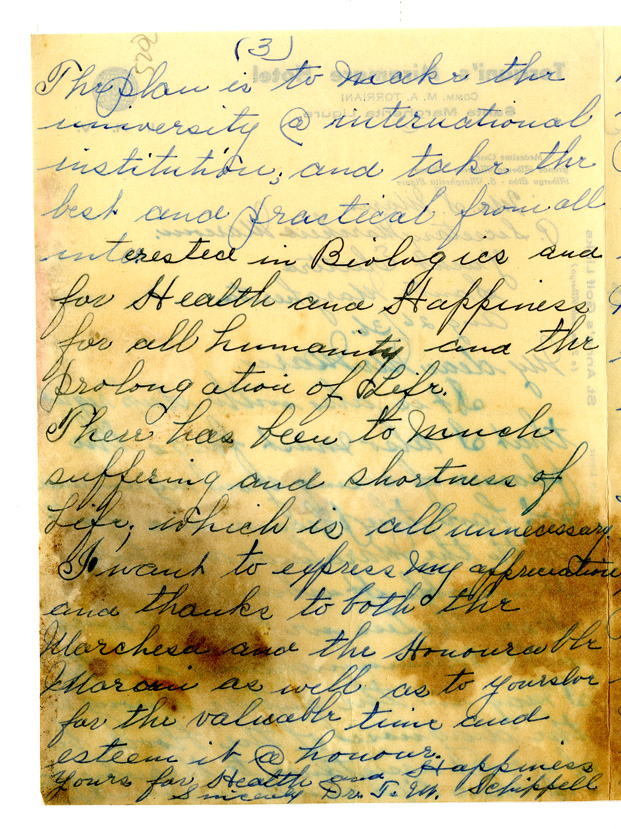 (3)
The plan is to make the
university @ international
institution; and take the
best and practical from all
interested in Biologics and
for Health and Happiness
for all humanity and the
prolongation of Life.
There has been to much
suffering and shortness of
Life; which is all unnecessary
I want to express my appreciation
and thanks to both the
Marchesa and the Honourable
as well as to
for the valuable time and
esteem it @ honour.
Yours for Health and Happiness
Sincerely Dr. T. M. Schippell
Comm. M. A. TORRIANI